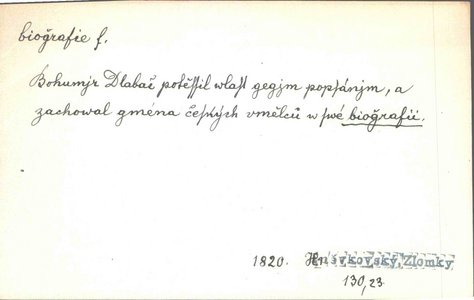 biografie f.
Bohumjr Dlabač potěſſil wlaſt gegjm popſánjm, a
zachowal gména čeſkých vmělců w ſwé biografii.
1820. Hněvkovský, Zlomky
130,23